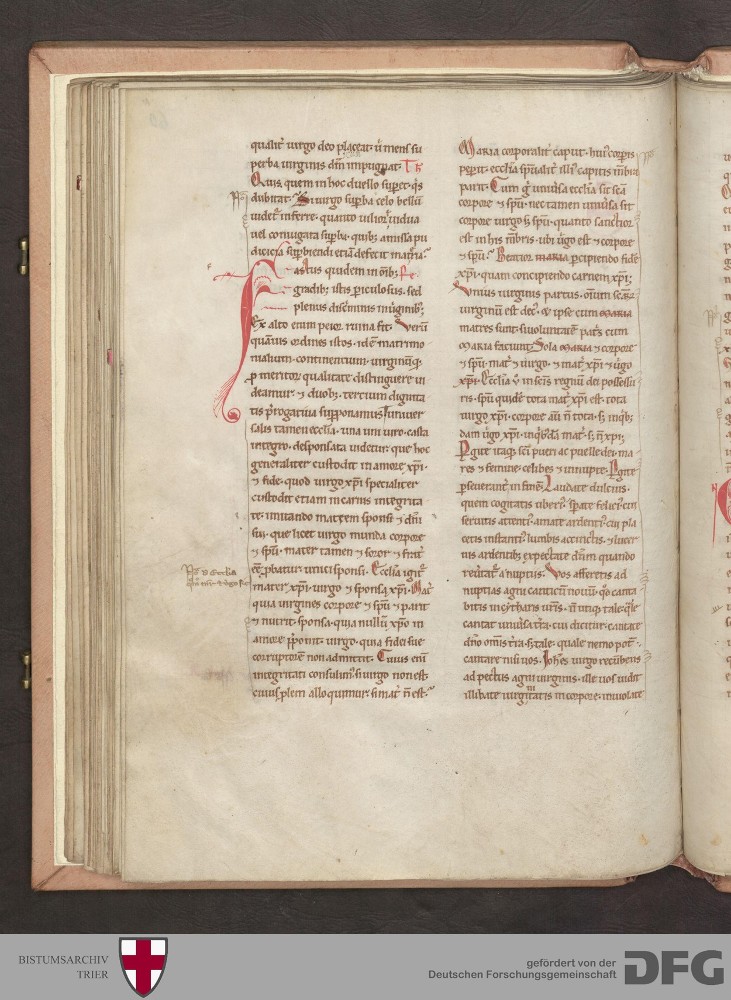 qualit᷑ uirgo deo placeat · ů mens su
perba uirginis dm̅ impugnat·
Quis, quem in hoc duello suꝑet · q̇s
dubitat · Si uirgo suꝑba celo bellū
uidet᷑ inferre · quanto uilior uidua
uel coniugata suꝑba · quib; amissa pu
dicicia suꝑbiendi etiā defecit materia ·
Fastus quidem in om̅ib;
gradib; istis periculosus · sed
plenus discriminis in uirginib;
Ex alto enim peior ruina fit · Verū
quāuis ordines istos · idē matrimo
nialium · continentium · uirginūq;
ꝓ meritoꝝ qualitate distinguere ui
deamur · ⁊ duob; tercium dignita
tis p̄rogatiua suꝑponamus · uniuer
salis tamen eccl̅ia · una uni uiro · casta
integro · desponsata uidetur · que hoc
generaliter custodit in amore xp̅i ·
⁊ fide · quod uirgo xp̅i specialiter
custodit etiam in carnis integrita
te · imitando matrem sponsi ⁊ dn̅i
sui · que licet uirgo munda corpore
⁊ sp̅u · mater tamen ⁊ soror ⁊
unici sponsi · Eccl̅ia igit᷑
mater xp̅i · uirgo ⁊ sponsa xp̅i · Mat᷑
quia uirgines corpore ⁊ sp̅u ⁊ parit
⁊ nutrit · sponsa · quia nullū xp̅o in
amore p̄ponit · uirgo · quia fidei sue
corruptorē non admittit · Cuius eni̅
integritati consulim᷒ · si uirgo non est ·
cuius plem alloquimur · si mat᷑ n̅ est ·
Maria corporalit᷑ caput · hui᷒ corꝑis
peperit · eccl̅ia sp̅ualit᷑ illi᷒ capitis mēbra
parit · Cum g᷑ uniu̅sa eccl̅ia sit sc̅a
corpore ⁊ sp̅u · nec tamen uniu̅sa sit
corpore uirgo ꝫ sp̅u · quanto sanctior
est in his mēbris · ubi uirgo est ⁊ corpore
⁊ sp̅u · Beatior maria ꝑcipiendo fidē
xp̅i · quam concipiendo carnem xp̅i ·
Vnius uirginis partus · om̅ium scāꝝ
uirginū est dec᷒ · ⁊ ipse cum maria
matres sunt · si uoluntatē pat᷑s cum
maria faciunt · Sola maria ⁊ corpore
⁊ sp̅u · mat᷑ ⁊ uirgo · ⁊ mat᷑ xp̅i ⁊ u̇go
xp̅i · Eccl̅ia v̊ in sc̅is regnū dei possessu
ris · sp̅u quidē tota mat᷑ xp̅i est · tota
uirgo xp̅i · corpore aū n̅ tota · ꝫ in q̇b;
dam u̇go xp̅i · in q̇b;dā mat᷑ · ꝫ n̅ xp̅i ·
Pgite itaq; sc̅i pueri ac puelle dei · ma
res ⁊ femine · celibes ⁊ innupte · Pgite
ꝑseuerant᷑ in finē · Laudate dulcius ·
quem cogitatis uberi᷒ · sꝑate felici᷒ · cui
seruitis attenti᷒ · amate ardenti᷒ · cui pla
cetis instanti᷒ · lumbis accinctis · ⁊ lucer
nis ardentib; expectate dn̅m quando
reu̅tat᷑ a nuptiis · Vos afferetis ad
nuptias agni canticū nouū · qd̊ canta
bitis in cytharis ur̅is · n̅ utiq; tale · q̄le
cantat uniu̅sa t᷑ra · cui dicitur · cantate
dn̅o om̅is t᷑ra · ꝫ tale · quale nemo pot᷑
cantare nisi uos · Joh̅es uirgo recūbens
ad pectus agni uirginis · ille uos uidit
illibate uirginitatis in corpore · inuiolate
BISTUMSARCHIV
TRIER
gefördert von der
Deutschen Forschungsgemeinschaft
DFG